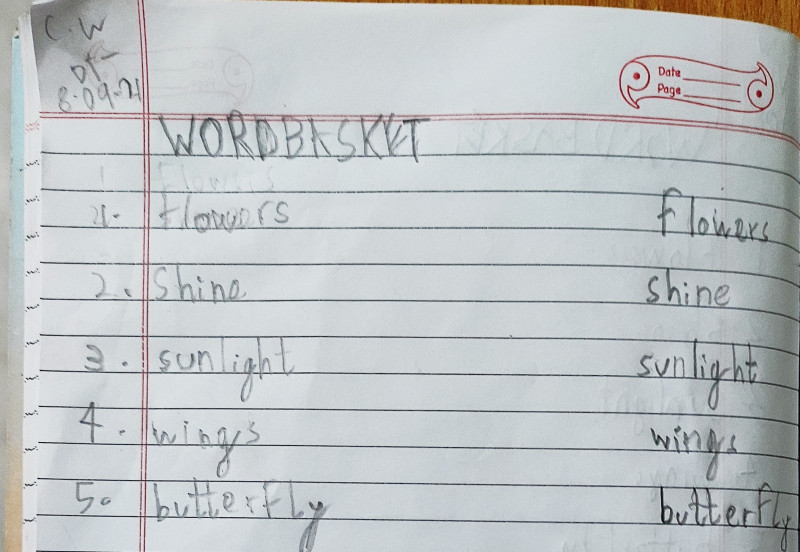 C.W
Dt-
8-09-21
Date
Page
WORDBASKET
1. flowers flowers
2. Shine shine
3. sunlight sunlight
4. wings wings
5. butterfly butterfly